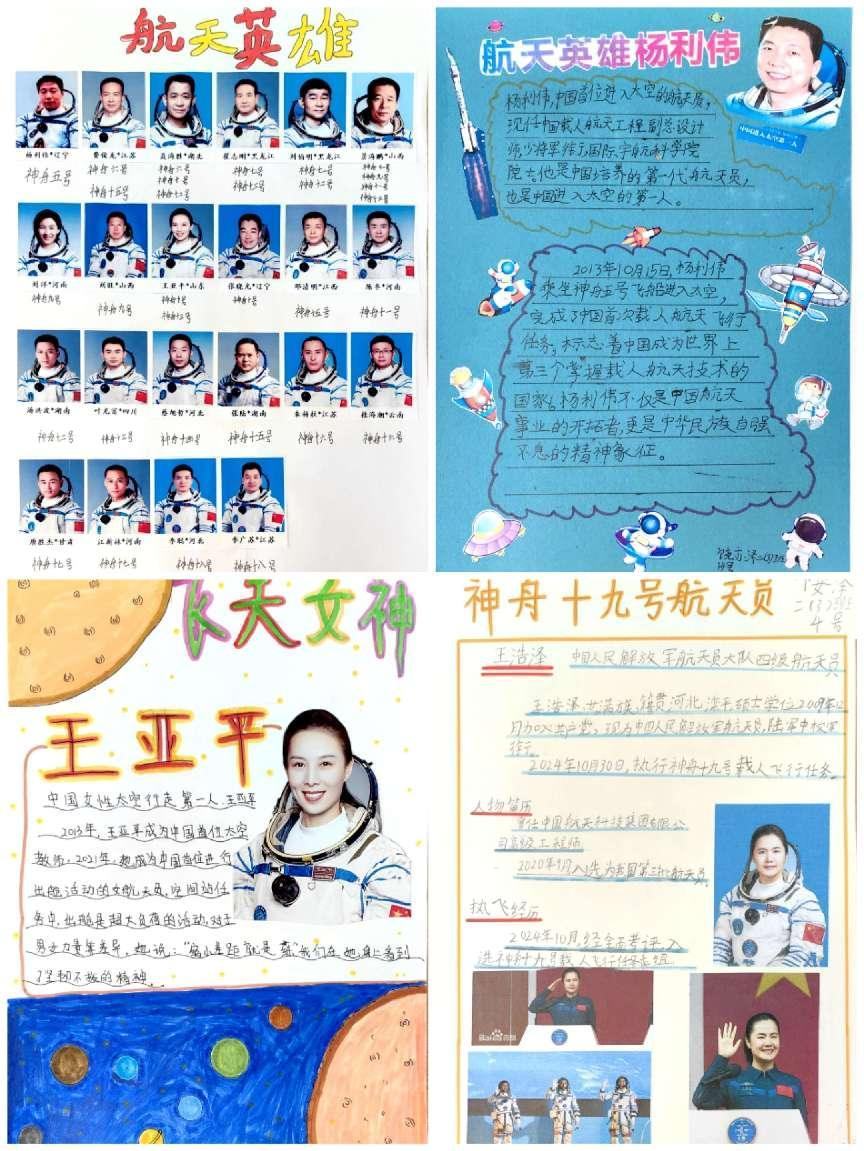 航天英雄
杨利伟*辽宁 费俊龙*江苏 聂海胜*湖北 翟志刚*黑龙江 刘伯明*黑龙江 景海鹏*山西
神舟五号 神舟六号 神舟六号 神舟七号 神舟七号 神舟七号
神舟十五号 神舟十号 神舟十三号 神舟十二号 神舟九号
神舟十二号 神舟十一号
神舟十六号
刘洋*河南 刘旺*山西 王亚平*山东 张晓光*辽宁 邓清明*江西 陈冬*河南
神舟九号 神舟九号 神舟十号 神舟十号 神舟十一号
汤洪波*湖南 叶光富*四川 蔡旭哲*河北 张陆*湖南 朱杨柱*江苏 桂海潮*云南
神舟十二号 神舟十三号 神舟十四号 神舟十五号 神舟十六号 神舟十六号
唐胜杰*甘肃 江新林*河南 李聪*河北 李广苏*江苏
神舟十七号 神舟十七号 神舟十八号 神舟十八号
航天英雄杨利伟
杨利伟,中国首位进入太空的航天员,
现任中国载人航天工程副总设计
师,少将军衔,国际宇航科学院
院士,他是中国培养的第一代航天员,
也是中国进入太空的第一人。
中国进入太空第一人
2013年10月15日,杨利伟
乘坐神舟五号飞船进入太空,
完成了中国首次载人航天飞行
任务,标志着中国成为世界上
第三个掌握载人航天技术的
国家。杨利伟不仅是中国航天
事业的开拓者,更是中华民族自强
不息的精神象征。
飞天女神
王亚平
中国女性太空行走第一人 王亚平
2013年,王亚平成为中国首位太空
教师,2021年,她成为中国首位进行
出舱活动的女航天员,空间站任
务中,出舱是超大负荷的活动,对于
男女力量差异,她说:"缩小差距就是赢"我们在她身上看到
了坚韧不拔的精神。
神舟十九号航天员
二(3)班
4号
王浩泽 中国人民解放军航天员大队四级航天员
王浩泽,女,满族,籍贯河北滦平,硕士学位,2009年12
月加入共产党。现为中国人民解放军航天员,陆军中校军
衔。
2024年10月30日,执行神舟十九号载人飞行任务。
人物简历
曾任中国航天科技集团有限公
司高级工程师
2020年9月入选为我国第三批航天员
执飞经历
2024年10月,经全面考评,入
选神舟十九号载人飞行任务乘组
Baidu百科